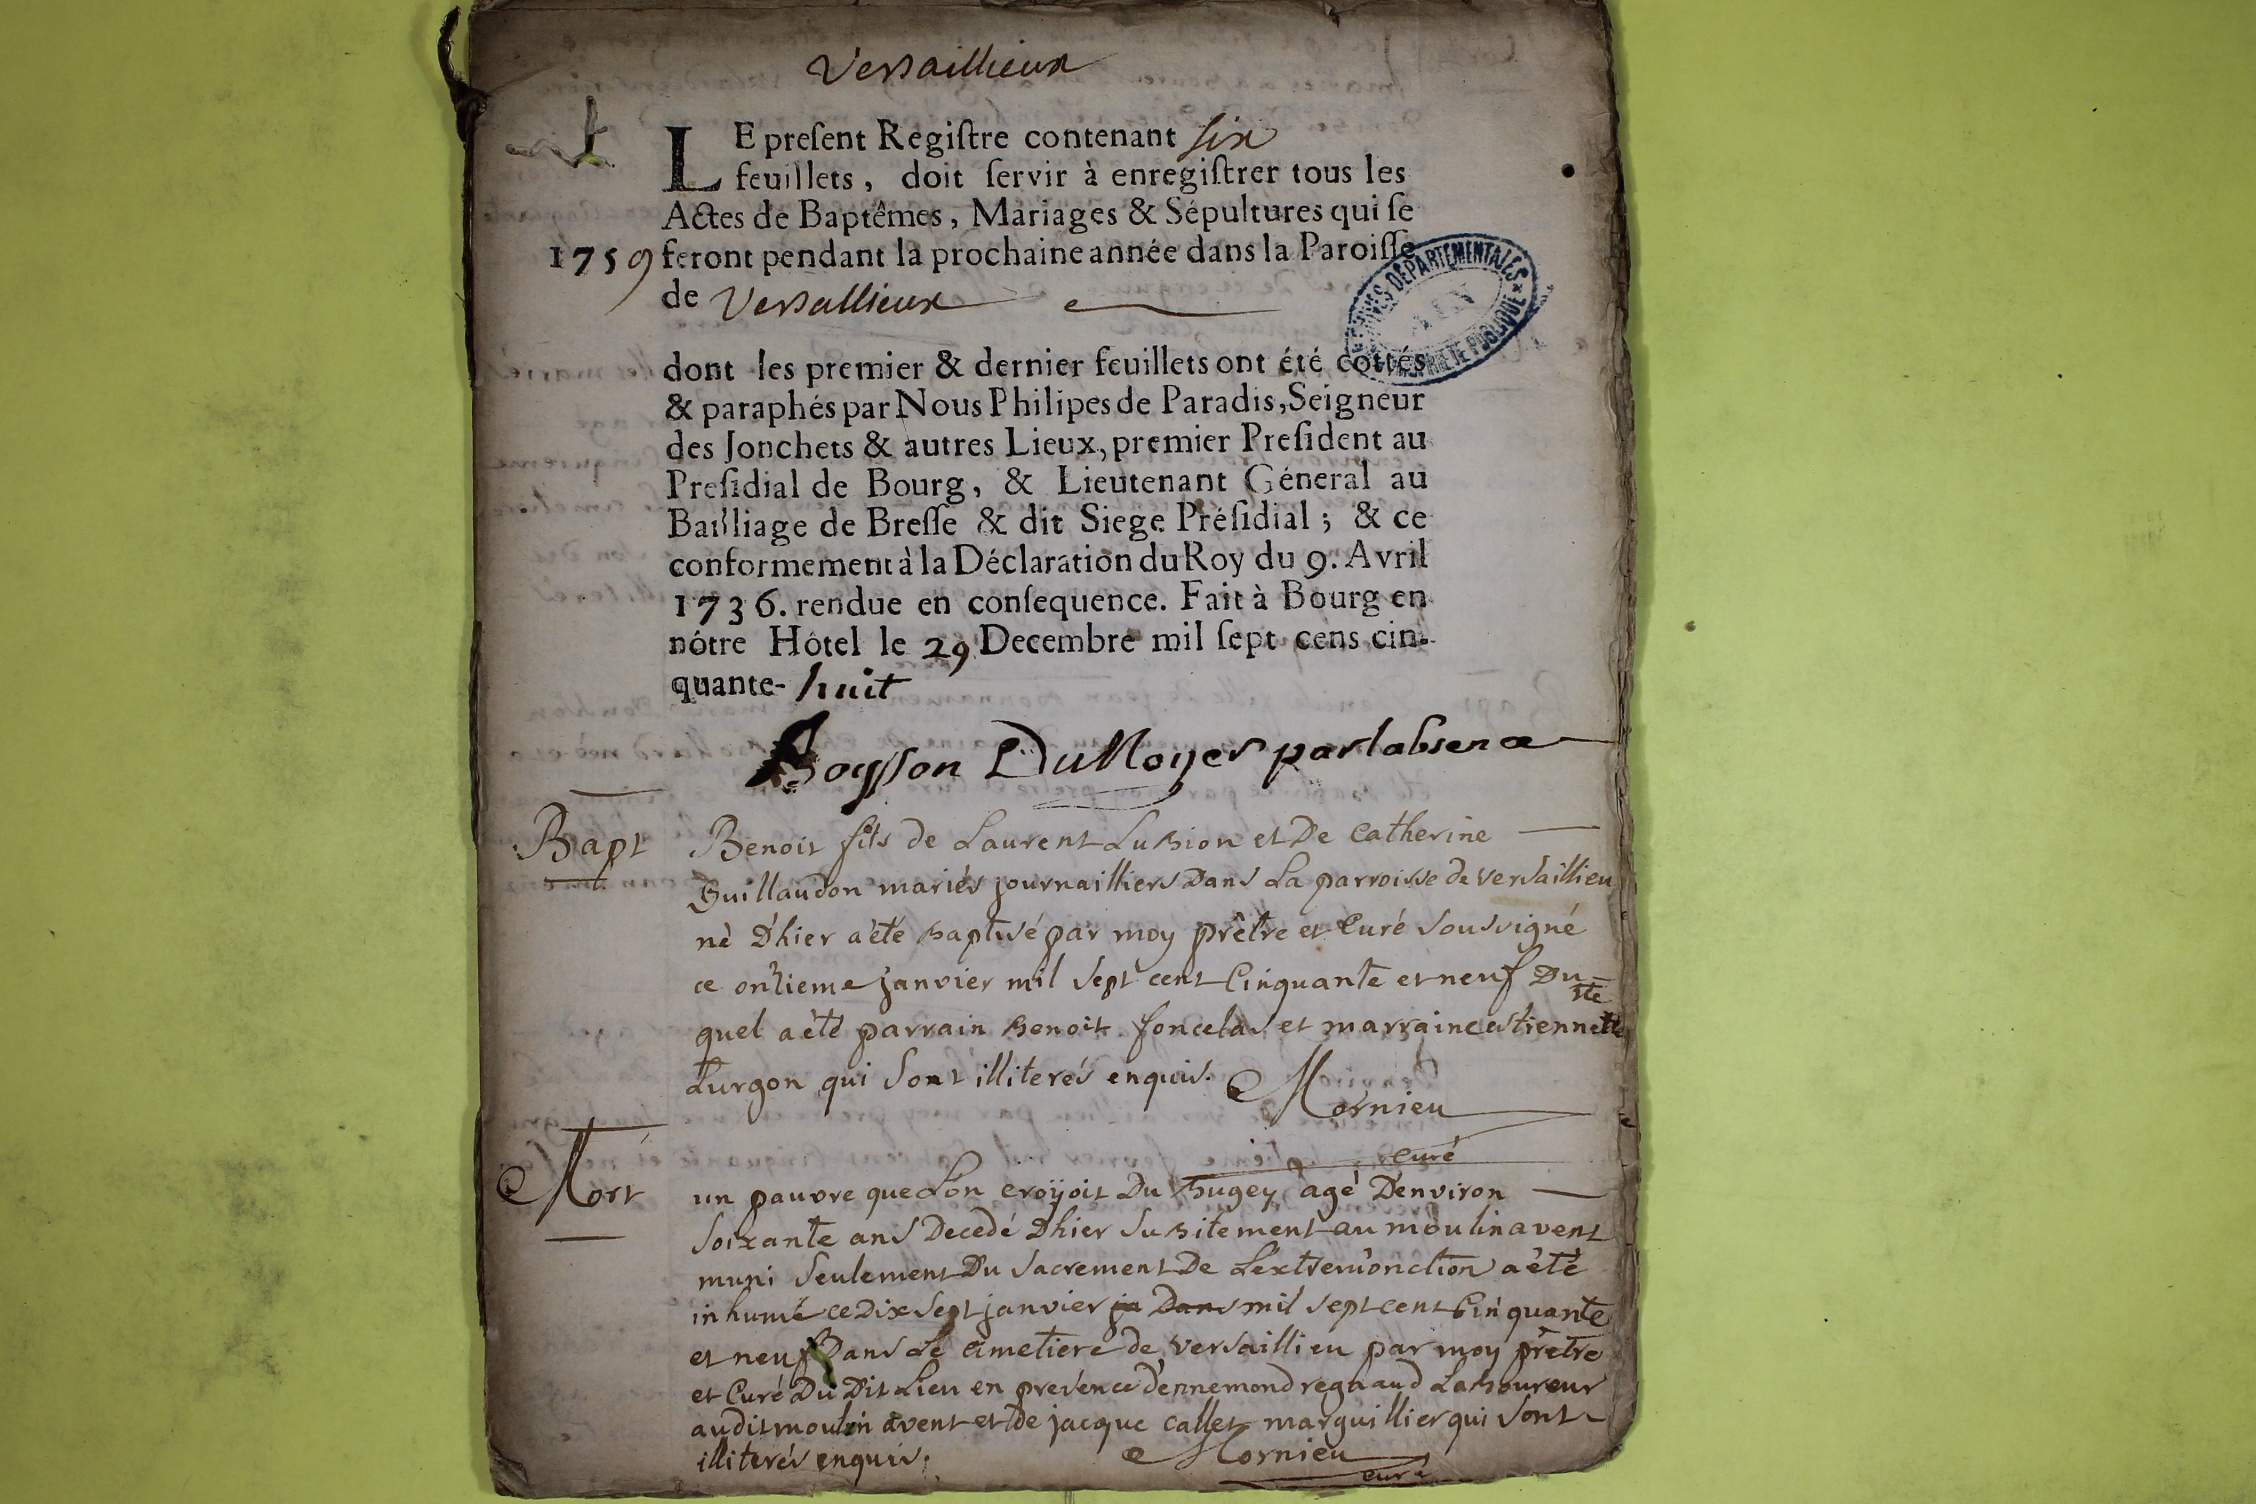 Versaillieux
LE preſent Regiſtre contenant six
feuillets, doit ſervir à enregiſtrer tous les
Actes de Baptêmes, Mariages & Sépultures qui ſe
1759 feront pendant la prochaine année dans la Paroiſſe
de Versallieux
ARCHIVES DÉPARTEMENTALES
AIN
PROPRIÉTÉ PUBLIQUE
dont les premier & dernier feuillets ont été cottés
& paraphés par Nous Philipes de Paradis, Seigneur
des Jonchets & autres Lieux, premier Preſident au
Preſidial de Bourg, & Lieutenant Géneral au
Bailliage de Breſſe & dit Siege Préſidial; & ce
conformement à la Déclaration du Roy du 9. Avril
1736. rendue en conſequence. Fait à Bourg en
nôtre Hôtel le 29 Decembre mil ſept cens cin-
quante-huit
Boysson DuNoyer par labsence
Bapt Benoit fils de Laurent Lubion et De Catherine
Guillaudon mariés journailliers Dans La parroisse de versaillieu
né D'hier a été baptisé par moy prêtre et Curé soussigné
ce onzieme janvier mil sept cent Cinquante et neuf Du
quel a été parrain benoit foncelas et marraine estiennette
Lurgon qui sont illiterés enquis. Mornieu
curé
Mort un pauvre que L'on croÿoit Du bugey agé D'environ
soixante ans Decedé D'hier subitement au moulin a vent
muni seulement Du sacrement De L'extremonction a été
inhumé ce Dix sept janvier ja Dans mil sept cent Cinquante
et neuf Dans Le cimetiere de versaillieu par moy prêtre
et Curé Du Dit Lieu en presence d'ennemond regaud Laboureur
audit moulin a vent et de jacque callet marguillier qui sont
illiterés enquis. Mornieu
curé